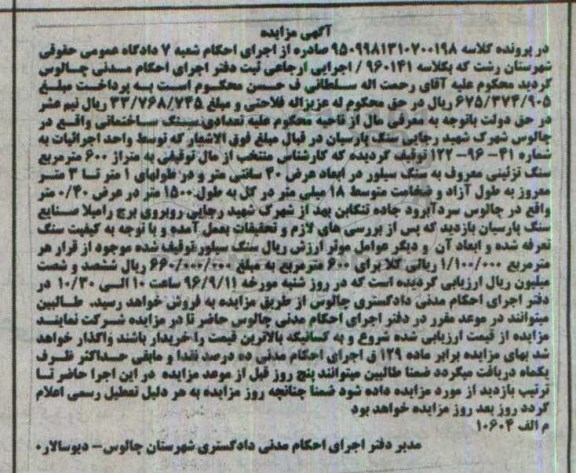 آگهی مزایده
در پرونده کلاسه ۹۵۰۹۹۸۱۳۱۰۷۰۰۱۹۸ صادره از اجرای احکام شعبه ۷ دادگاه عمومی حقوقی
شهرستان رشت که بکلاسه ۹۶۰۱۴۱ / اجرایی ارجاعی ثبت دفتر اجرای احکام مدنی چالوس
گردید محکوم علیه آقای رحمت اله سلطانی ف حسن محکوم است به پرداخت مبلغ
۶۷۵/۳۷۴/۹۰۵ ریال در حق محکوم له عزیزاله فلاحتی و مبلغ ۳۳/۷۶۸/۷۴۵ ریال نیم عشر
در حق دولت باتوجه به معرفی مال از ناحیه محکوم علیه تعدادی سنگ ساختمانی واقع در
چالوس شهرک شهید رجایی سنگ پارسیان در قبال مبلغ فوق الاشعار که توسط واحد اجرائیات به
شماره ۴۱- ۹۶- ۱۲۲ توقیف گردیده که کارشناس منتخب از مال توقیفی به متراژ ۶۰۰ مترمربع
سنگ تزئینی معروف به سنگ سیلور در ابعاد عرض ۴۰ سانتی متر و در طولهای ۱ متر تا ۳ متر
معروز به طول آزاد و ضخامت متوسط ۱۸ میلی متر در کل به طول ۱۵۰۰ متر در عرض ۰/۴۰ متر
واقع در چالوس سردآبرود جاده تنکابن بعد از شهرک شهید رجایی روبروی برج رامیلا صنایع
سنگ پارسیان بازدید که پس از بررسی های لازم و تحقیقات بعمل آمده و با توجه به کیفیت سنگ
تعرفه شده و ابعاد آن و دیگر عوامل موثر ارزش ریال سنگ سیلور توقیف شده موجود از قرار هر
مترمربع ۱/۱۰۰/۰۰۰ ریالی کلا برای ۶۰۰ مترمربع به مبلغ ۶۶۰/۰۰۰/۰۰۰ ریال ششصد و شصت
میلیون ریال ارزیابی گردیده است که در روز شنبه مورخه ۹۶/۹/۱۱ ساعت ۱۰ الی ۱۰/۳۰ در
دفتر اجرای احکام مدنی دادگستری چالوس از طریق مزایده به فروش خواهد رسید. طالبین
میتوانند در موعد مقرر در دفتر اجرای احکام مدنی چالوس حاضر تا در مزایده شرکت نمایند
مزایده از قیمت ارزیابی شده شروع و به کسانیکه بالاترین قیمت را خریدار باشند واگذار خواهد
شد بهای مزایده برابر ماده ۱۲۹ ق اجرای احکام مدنی ده درصد نقدا و مابقی حداکثر ظرف
یکماه دریافت میگردد ضمنا طالبین میتوانند پنج روز قبل از موعد مزایده در این اجرا حاضر تا
ترتیب بازدید از مورد مزایده داده شود ضمنا چنانچه روز مزایده به هر دلیل تعطیل رسمی اعلام
گردد روز بعد روز مزایده خواهد بود
م الف ۱۰۶۰۴
مدیر دفتر اجرای احکام مدنی دادگستری شهرستان چالوس- دیوسالار۰